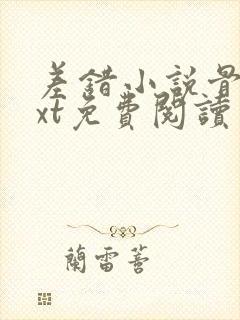 差錯小説骨
xt免費閱讀
蘭雷菩